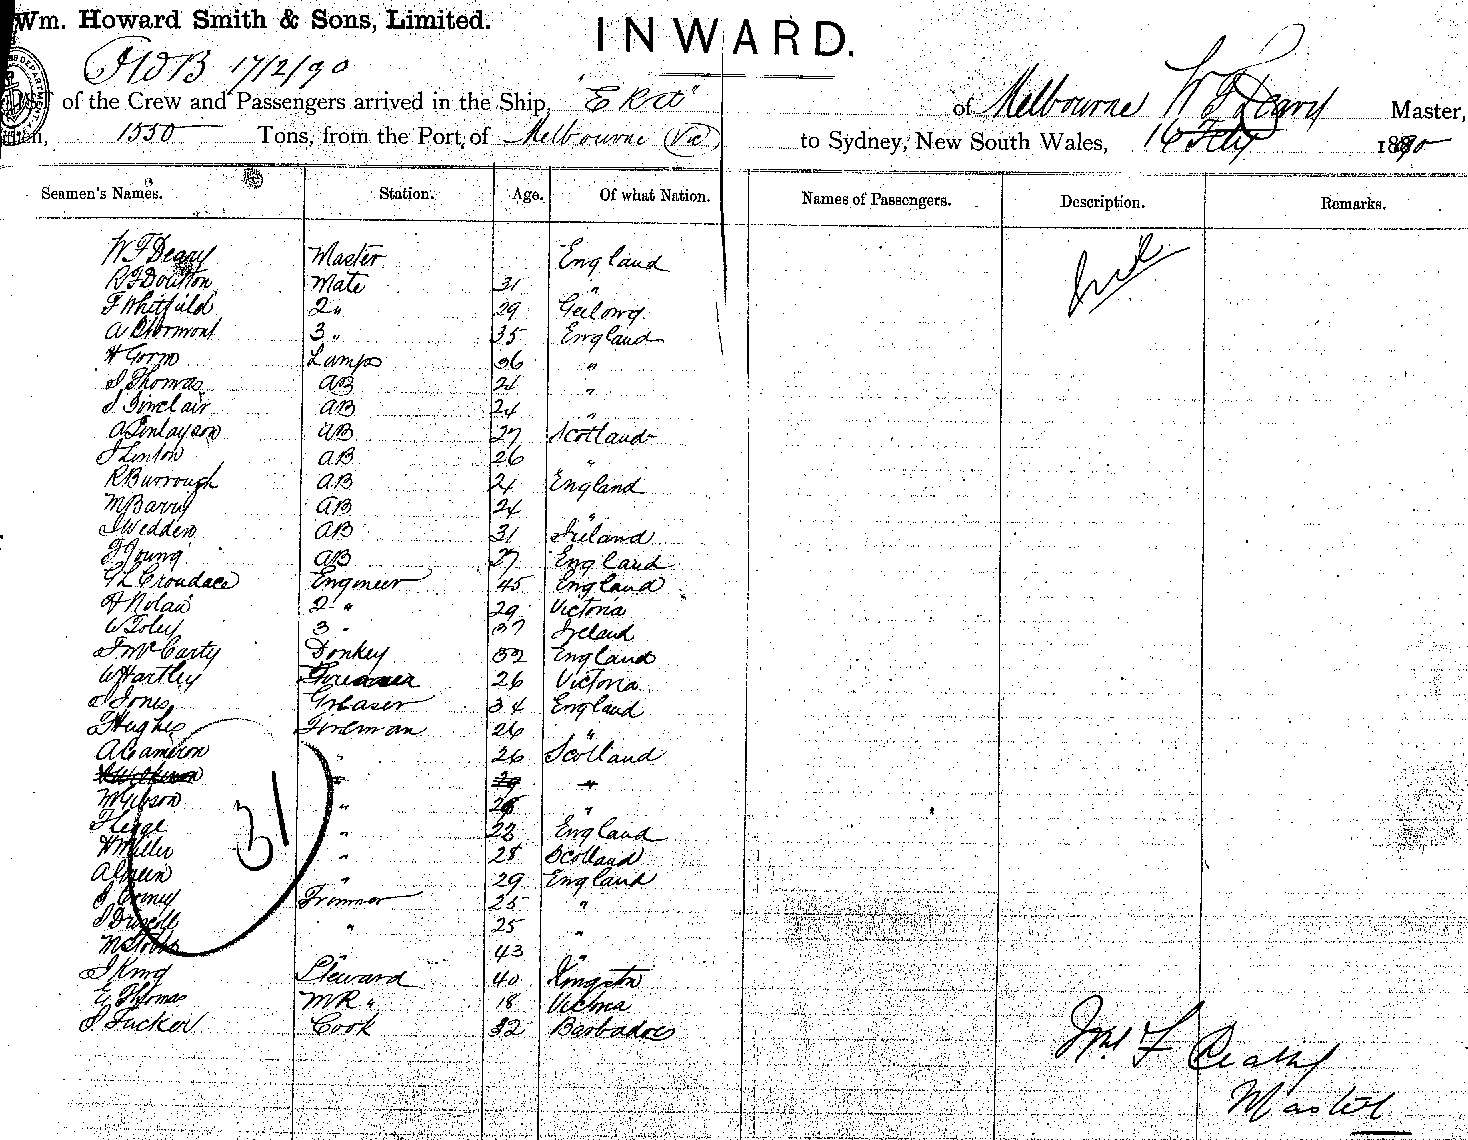 Wm. Howard Smith & Sons, Limited.
INWARD.
17/2/90
of the Crew and Passengers arrived in the Ship, of Melbourne W F Deary Master,
1550 Tons, from the Port of Melbourne (Vic) to Sydney, New South Wales, 16 Feby 1890
Seamen's Names. Station. Age. Of what Nation. Names of Passengers. Description. Remarks.
W F Deary Master England
Mate 31 "
F Whitfield 2 " 29 Geelong
3 " 35 England
H Gorm Lamps 36 "
J Thomas AB 21 "
J Sinclair AB 24 "
A Finlayson AB 27 Scotland
J Linton AB 26 "
R Burrough AB 21 England
M Barry AB 24 "
J Wedden AB 31 Ireland
J Young AB 27 England
G L Croudace Engineer 45 England
H Nolan 2 " 29 Victoria
W Foley 3 " 37 Ireland
J McCarty Donkey 32 England
W Hartley 26 Victoria
J Jones Greaser 34 England
J Hughes Fireman 26 "
A Cameron " 26 Scotland
" 29 "
M Gibson " "
F Legge " 22 England
H Miller " 28 Scotland
A Green " 29 England
Trimmer 25 "
" 25 "
" 43 "
J King Steward 40 Kingston
E Thomas " 18 Victoria
J Tucker Cook 32 Barbadoes
31
Master